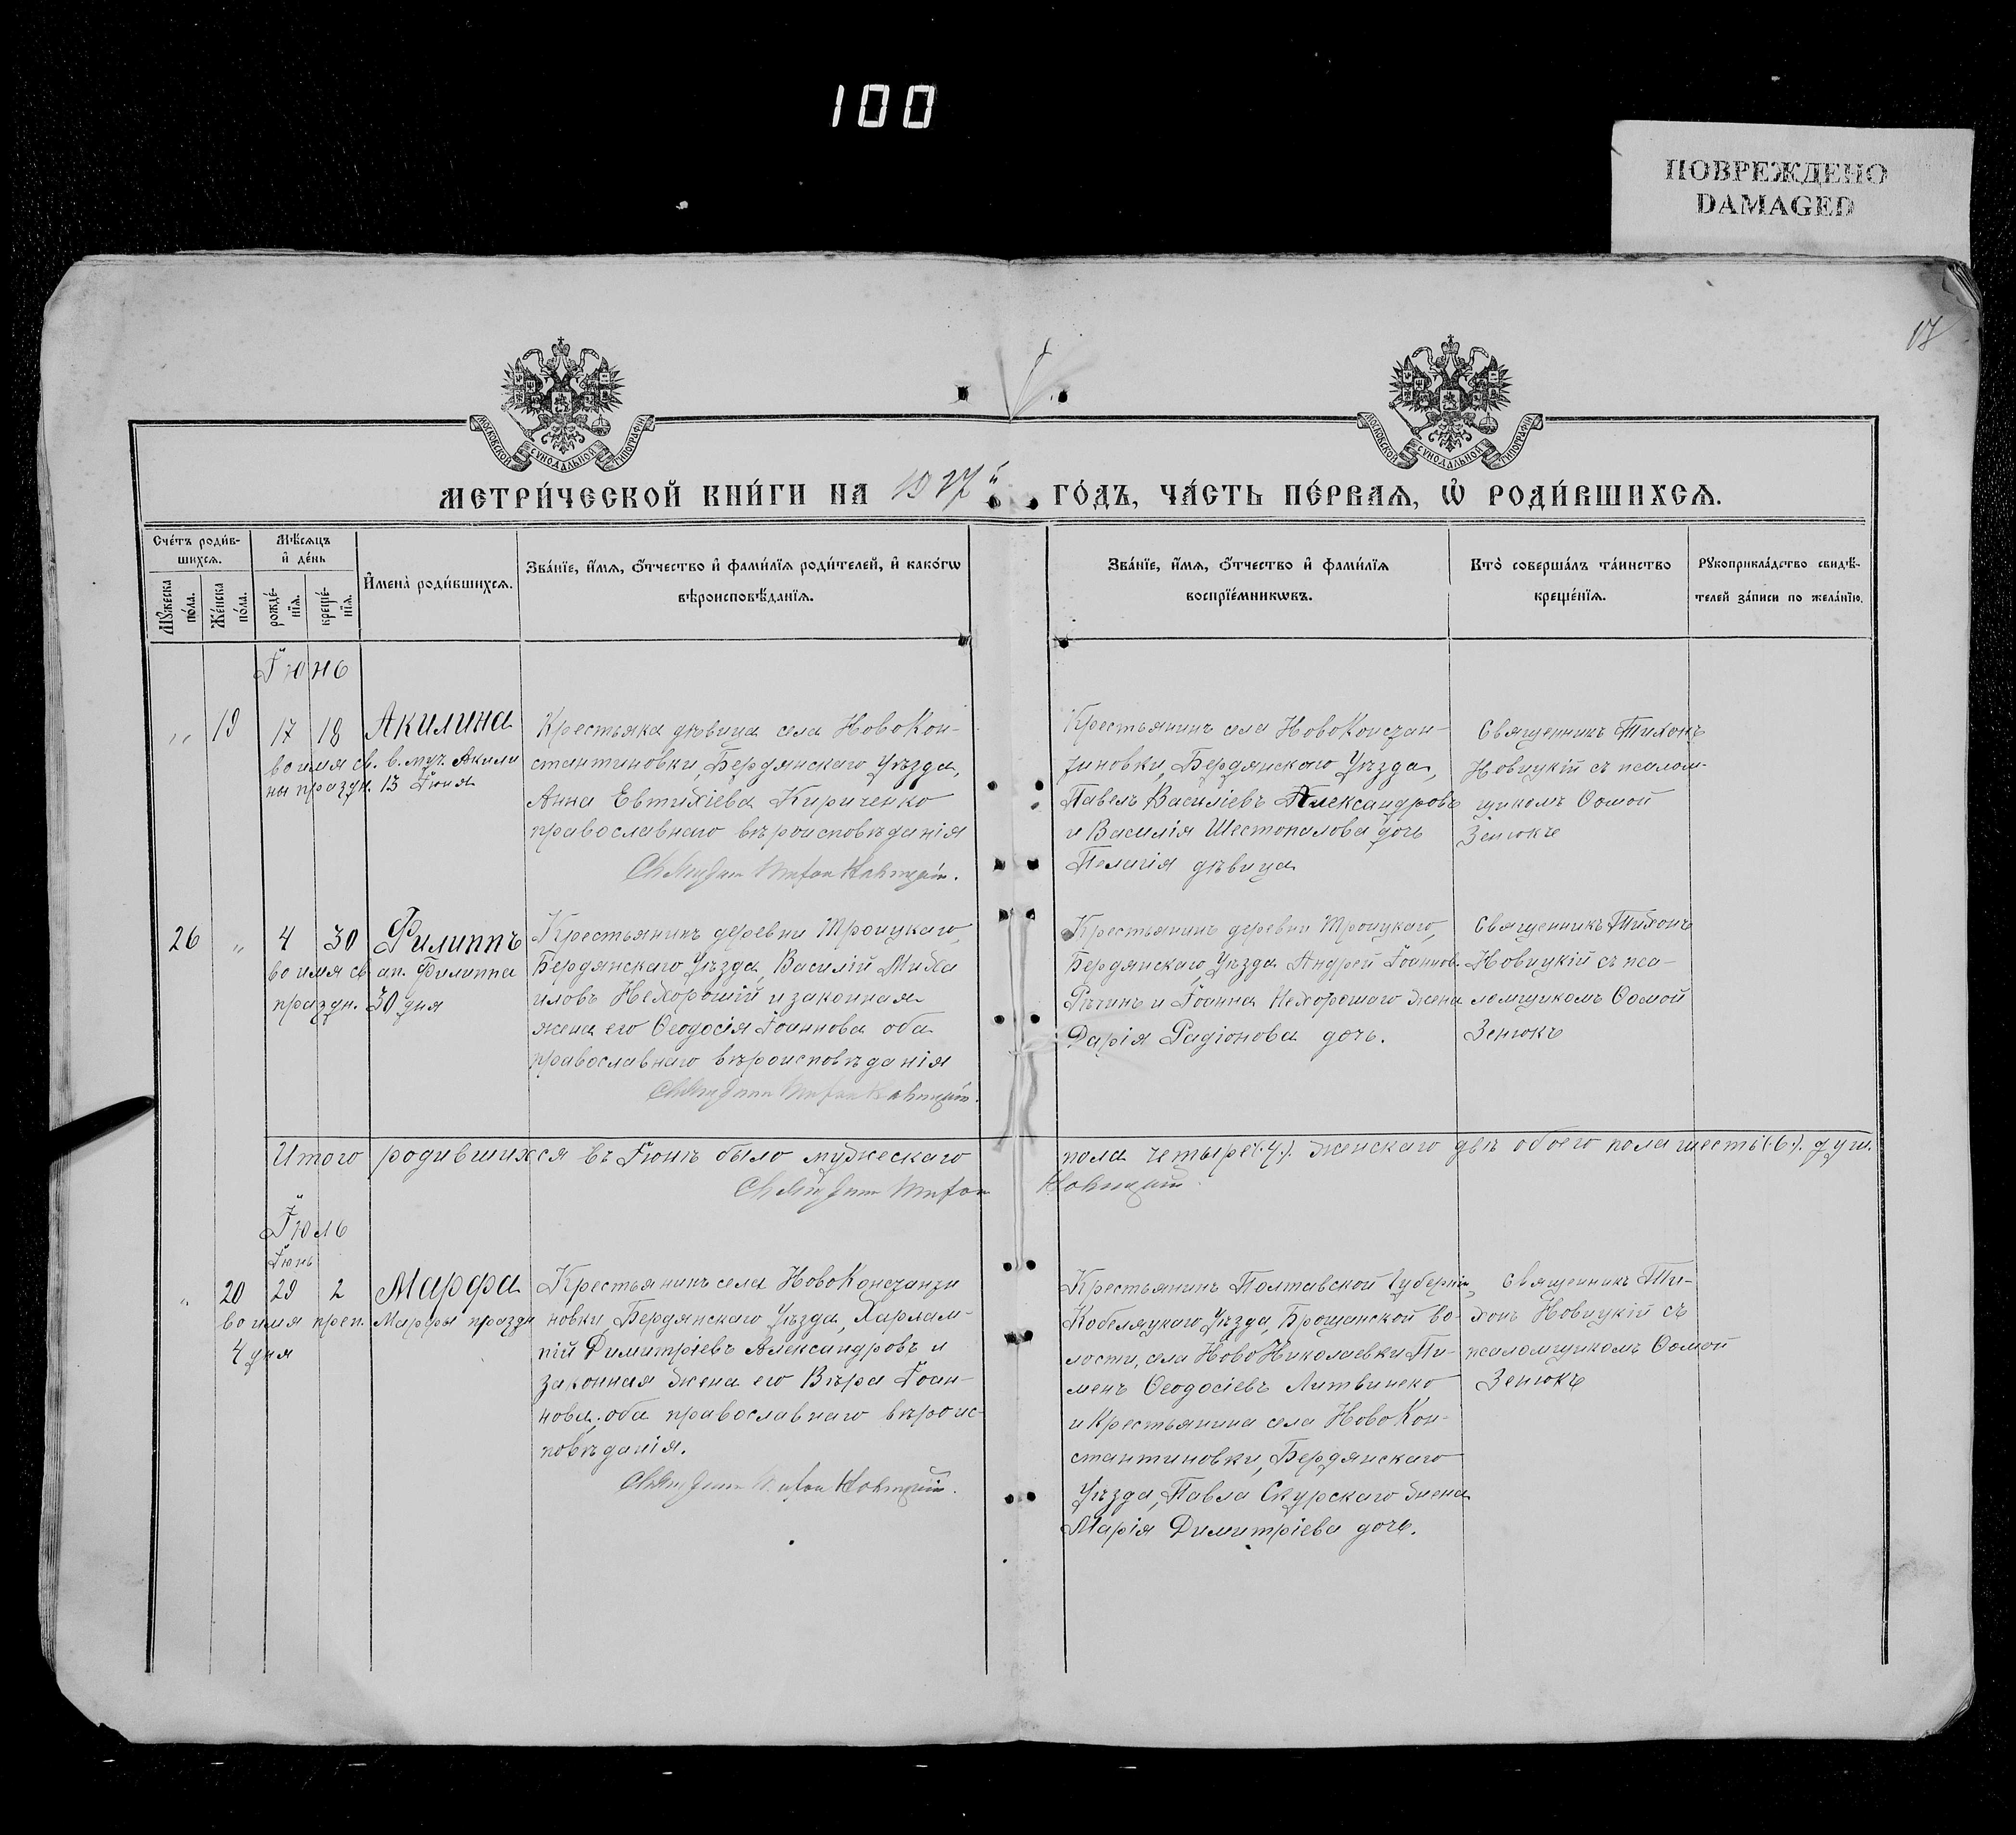 100
ПОВРЕЖДЕНО
DAMAGED
17
МОСКОВСКОЙ СѴНОДАЛЬНОЙ ТИПОГРАФІИ
МОСКОВСКОЙ СѴНОДАЛЬНОЙ ТИПОГРАФІИ
МЕТРИ́ЧЕСКОЙ КНИ́ГИ НА 1917й ГО́ДЪ, ЧА́СТЬ ПЕ́РВАѦ, Ѡ҆ РОДИ́ВШИХСѦ.
Сче́тъ роди́в-
шихсѧ.
Мꙋжеска по́ла.
Же́нска по́ла.
Мѣ́сѧцъ
и҆ де́нь
рожде́-
нїѧ.
креще́-
нїѧ.
И҆мена̀ роди́вшихсѧ.
Зва́нїе, и҆́мѧ, ѻ҆́тчество и҆ фами́лїѧ роди́телей, и҆ како́гѡ
вѣроисповѣ́данїѧ.
Зва́нїе, и҆́мѧ, ѻ҆́тчество и҆ фами́лїѧ
воспрїе́мникѡвъ.
Кто̀ соверша́лъ та́инство
креще́нїѧ.
Рꙋкоприкла́дство свидѣ́-
телей за́писи по жела́нїю.
Іюнь
„ 19 17 18 Акилина
во имя св. в. муч. Акили
ны праздн. 13 Іюня
Крестьяка дѣвица села НовоКон-
стантиновки, Бердянскаго Уѣзда,
Анна Евтихіева Кириченко
православнаго вѣроисповѣданія
Священникъ Тихонъ Новицкій.
Крестьянинъ села НовоКонстан-
тиновки, Бердянскаго Уѣзда,
Павелъ Василіевъ Александровъ
и Василія Шестопалова дочь
Пелагія дѣвица
Священникъ Тихонъ
Новицкій съ псалом-
щикомъ Ѳомой
Зенюкъ
26 „ 4 30 Филиппъ
во имя св. ап. Филиппа
праздн. 30 дня
Крестьянинъ деревни Троицкаго,
Бердянскаго Уѣзда, Василій Миха
иловъ Нехорошій и законная
жена его Ѳеодосія Іоаннова оба
православнаго вѣроисповѣданія
Священникъ Тихонъ Новицкій.
Крестьянинъ деревни Троицкаго,
Бердянскаго Уѣзда Андрей Іоаннов.
Рѣчинъ и Іоанна Нехорошаго жена
Дарія Радіонова дочь.
Священникъ Тихонъ
Новицкій съ пса-
ломщикомъ Ѳомой
Зенюкъ
Итого родившихся въ Іюнѣ было мужескаго пола четыре (4). женскаго двѣ обоего пола шесть (6). душ.
Священникъ Тихонъ Новицкій
Іюль
Іюнь
„ 20 29 2 Марфа
во имя преп. Марфы праздн
4 дня
Крестьянинъ села НовоКонстанти
новки, Бердянскаго Уѣзда, Харлам-
пій Димитріевъ Александровъ и
законная жена его Вѣра Іоан-
нова, оба православнаго вѣроис-
повѣданія.
Священникъ Тихонъ Новицкій.
Крестьянинъ Полтавской Губерніи,
Кобеляцкаго Уѣзда, Брощанской во-
лости, села НовоНиколаевки Пи-
менъ Ѳеодосіевъ Литвинеко
и Крестьянина села НовоКон-
стантиновки, Бердянскаго
Уѣзда, Павла Скурскаго жена
Марія Димитріева дочь.
Священникъ Ти-
хонъ Новицкій съ
псаломщикомъ Ѳомой
Зенюкъ